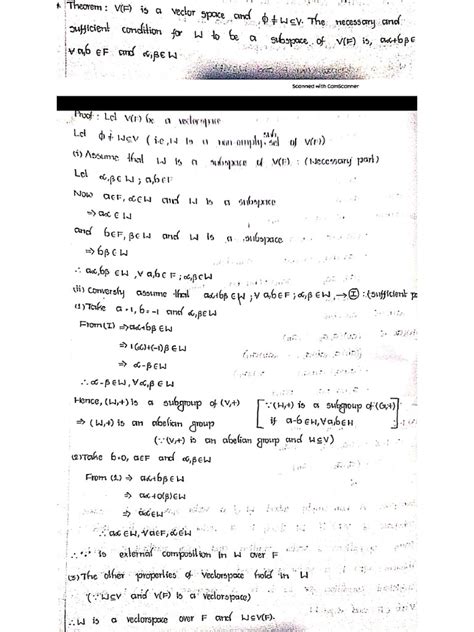 * Theorem : V(F) is a vector space and ϕ ≠ W⊆V. The necessary and
sufficient condition for W to be a subspace of V(F) is, aα+bβ∈
∀ a,b ∈F and α,β∈W
Scanned with CamScanner
Proof : Let V(F) be a vectorspace
Let ϕ ≠ W⊆V ( i.e., W is a non-empty sub set of V(F))
(i) Assume that W is a subspace of V(F) : (Necessary part)
Let α,β∈W ; a,b∈F
Now a∈F, α∈W and W is a subspace
⇒ aα ∈ W
and b∈F, β∈W and W is a subspace
⇒ bβ∈W
∴ aα, bβ ∈W , ∀ a,b∈F ; α,β∈W
(ii) conversly assume that aα+bβ∈W ; ∀ a,b∈F ; α,β∈W, → Ⓘ : (sufficient p
(1) Take a=1, b=-1 and α,β∈W
From (I) ⇒ aα+bβ∈W
⇒ 1(α)+(-1)β∈W
⇒ α-β∈W
∴ α-β∈W, ∀α,β∈W
Hence, (W,+) is a subgroup of (V,+) [∵ (H,+) is a subgroup of (G,+)
⇒ (W,+) is an abelian group if a-b∈H, ∀a,b∈H]
(∵ (V,+) is an abelian group and W⊆V)
(2) Take b=0, a∈F and α,β∈W
From (1) ⇒ aα+bβ∈W
⇒ aα+0(β)∈W
⇒ aα∈W
∴ aα∈W, ∀a∈F, α∈W
∴ '.' is external composition in W over F
(3) The other properties of vectorspace hold in W
(∵ W⊆V and V(F) is a vectorspace)
∴ W is a vectorspace over F and W⊆V(F).